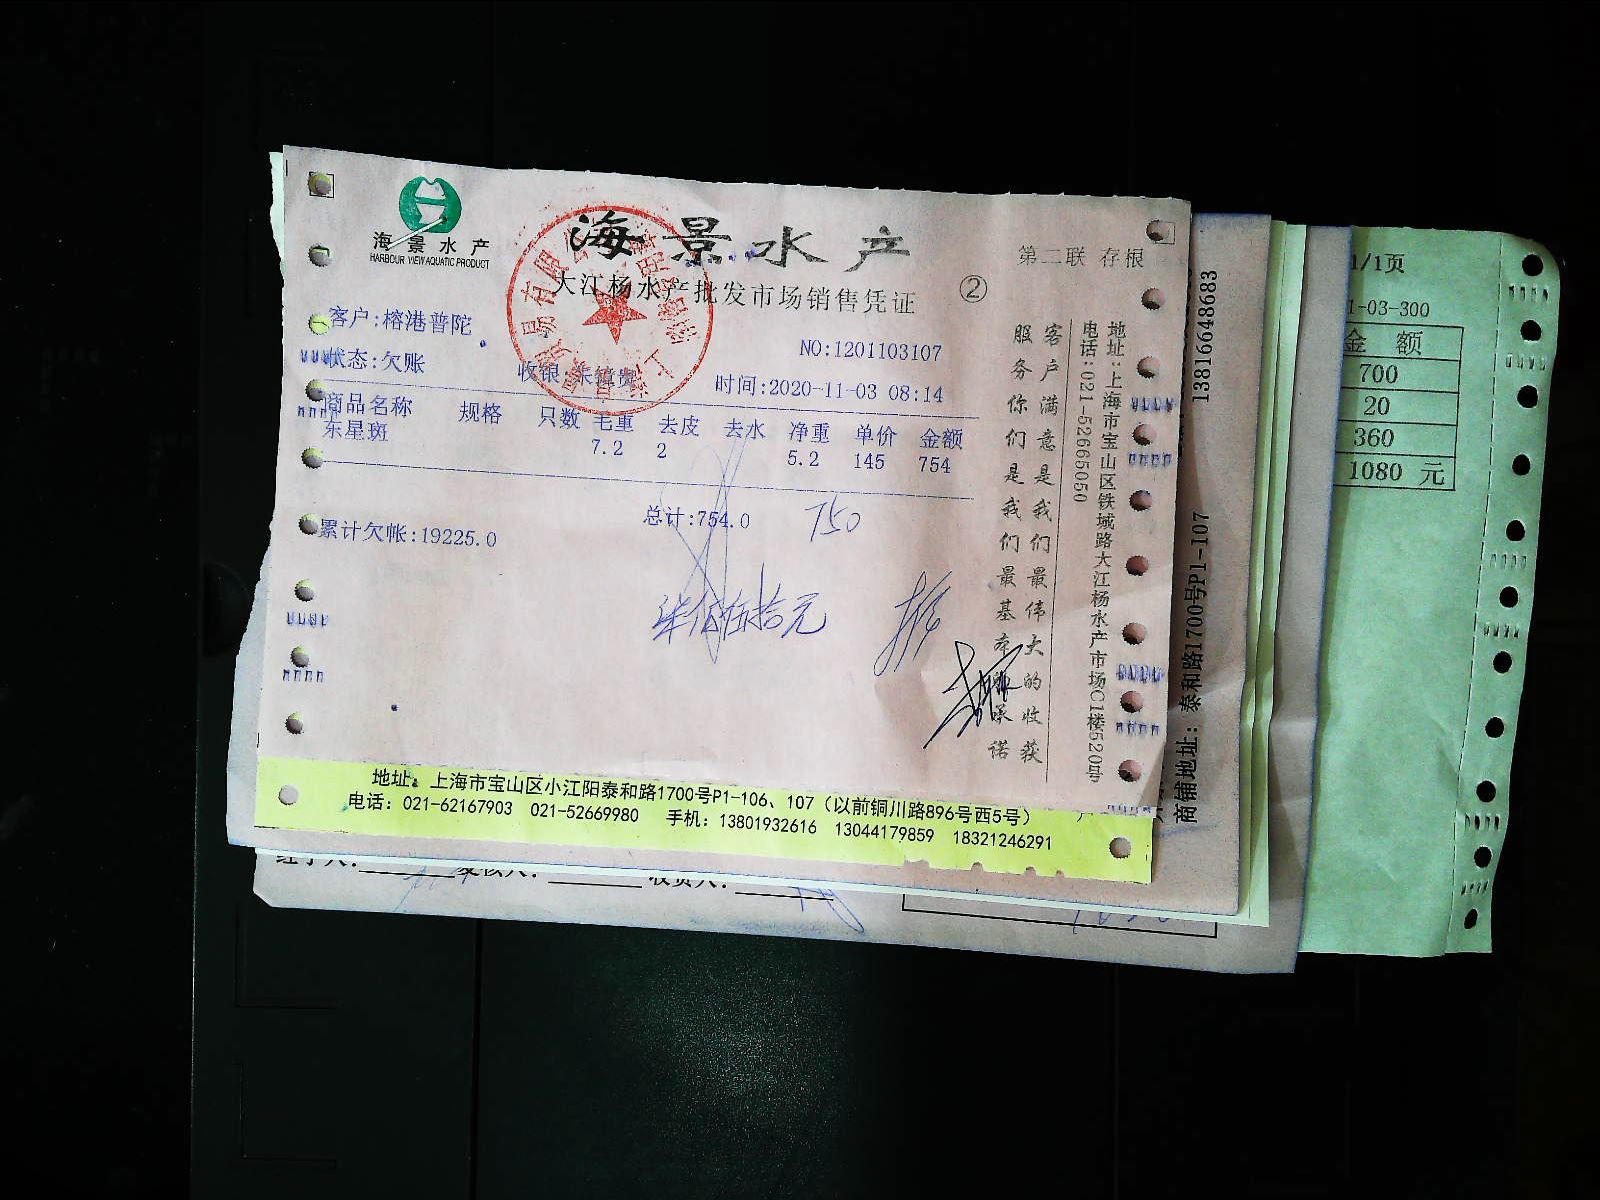 海景水产
HARBOUR VIEW AQUATIC PRODUCT
海景水产
大江杨水产批发市场销售凭证
②
第二联 存根
客户:榕港普陀
NO:1201103107
状态:欠账
收银:朱锦贵
时间:2020-11-03 08:14
商品名称 规格 只数 毛重 去皮 去水 净重 单价 金额
东星斑 7.2 2 5.2 145 754
总计:754.0
750
累计欠帐:19225.0
柒佰伍拾元
客户满意是我们最伟大的收获
服务你们是我们最基本的承诺
地址:上海市宝山区铁城路大江杨水产市场C1楼520号
电话:021-52665050
地址：上海市宝山区小江阳泰和路1700号P1-106、107（以前铜川路896号西5号）
电话：021-62167903 021-52669980 手机：13801932616 13044179859 18321246291
13816648683
商铺地址：泰和路1700号P1-107
1/1页
1-03-300
金 额
700
20
360
1080 元